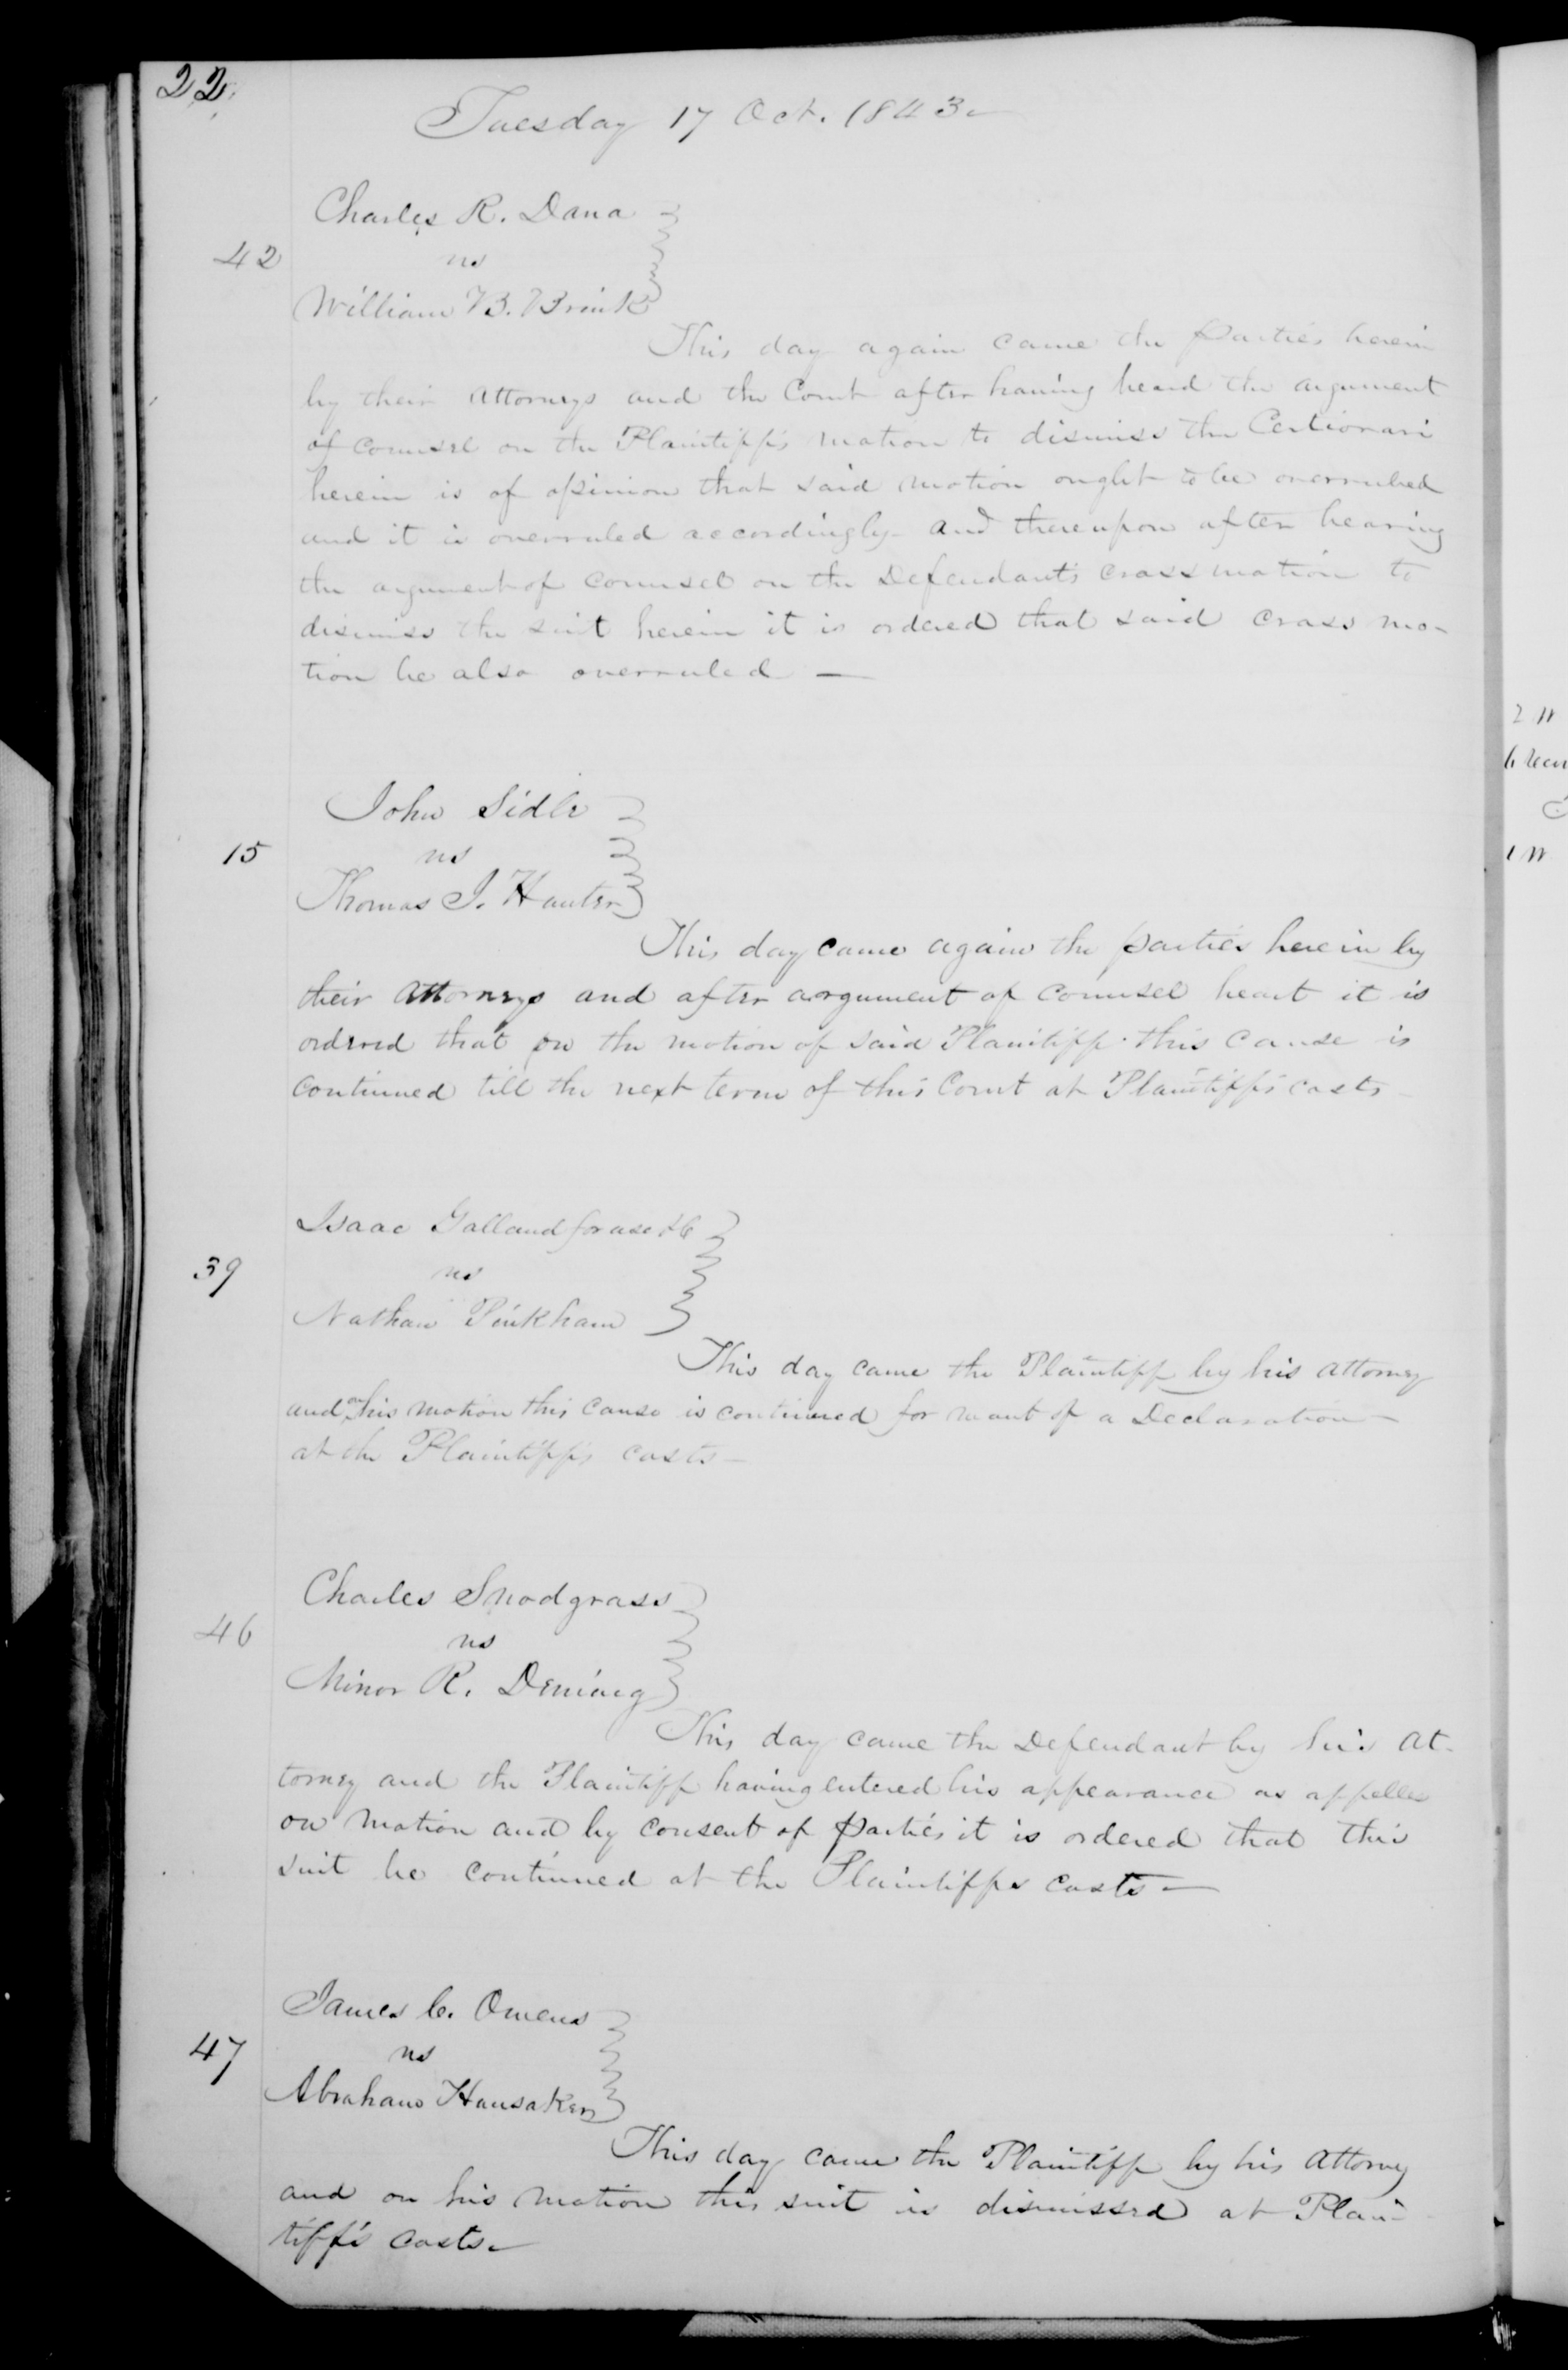 22.
Tuesday 17 Oct. 1843
Charles R. Dana
42
vs
William B. Brink
This day again came the parties herein
by their attorneys and the Court after having heard the argument
of counsel on the Plaintiff's motion to dismiss the Certiorari
herein is of opinion that said motion ought to be overruled
and it is overruled accordingly - And thereupon after hearing
the argument of counsel on the Defendant's cross motion to
dismiss the suit herein it is ordered that said cross mo-
tion be also overruled —
John Sidle
15
vs
Thomas J. Hunter
This day came again the parties herein by
their attorneys and after argument of counsel heart it is
ordered that on the motion of said Plaintiff this cause is
continued till the next term of this Court at Plaintiff's costs
Isaac Galland for use &c
39
vs
Nathan Pinkham
This day came the Plaintiff by his attorney
and on his motion this cause is continued for want of a Declaration —
at the Plaintiff's costs —
Charles Snodgrass
46
vs
Minor R. Deming
This day came the Defendant by his at-
torney and the Plaintiff having entered his appearance as appellee
on motion and by consent of parties it is ordered that this
suit be continued at the Plaintiffs costs —
James C. Owens
47
vs
Abraham Hunsaker
This day came the Plaintiff by his attorney
and on his motion this suit is dismissed at Plain-
tiff's costs.